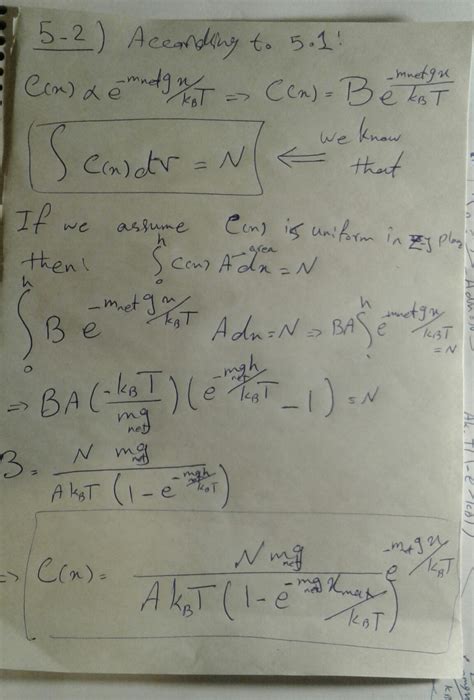 5-2) According to 5.1:
C(x) ∝ e^{-m_net g x / k_B T} ⇒ C(x) = B e^{-m_net g x / k_B T}
∫ C(x) dv = N ⇐ we know that
If we assume C(x) is uniform in z-y plane
then: ∫_0^h C(x) A dx = N
area
∫_0^h B e^{-m_net g x / k_B T} A dx = N ⇒ BA ∫_0^h e^{-m_net g x / k_B T} = N
⇒ BA (-k_B T / m_net g) (e^{-m_net g h / k_B T} - 1) = N
B = N m_net g / A k_B T (1 - e^{-m_net g h / k_B T})
⇒ C(x) = N m_net g / A k_B T (1 - e^{-m_net g x_max / k_B T}) e^{-m_net g x / k_B T}